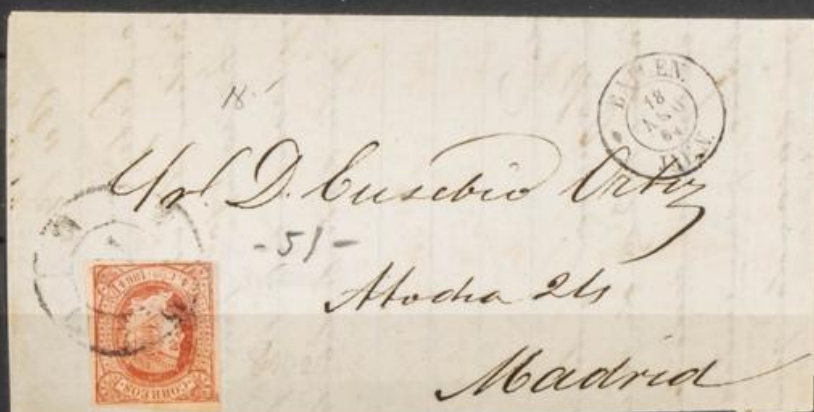 BAILEN.
18
AGO
64
JAEN.
18
Sr. D. Eusebio Ortiz
-51-
Atocha 24
Madrid
CORREOS